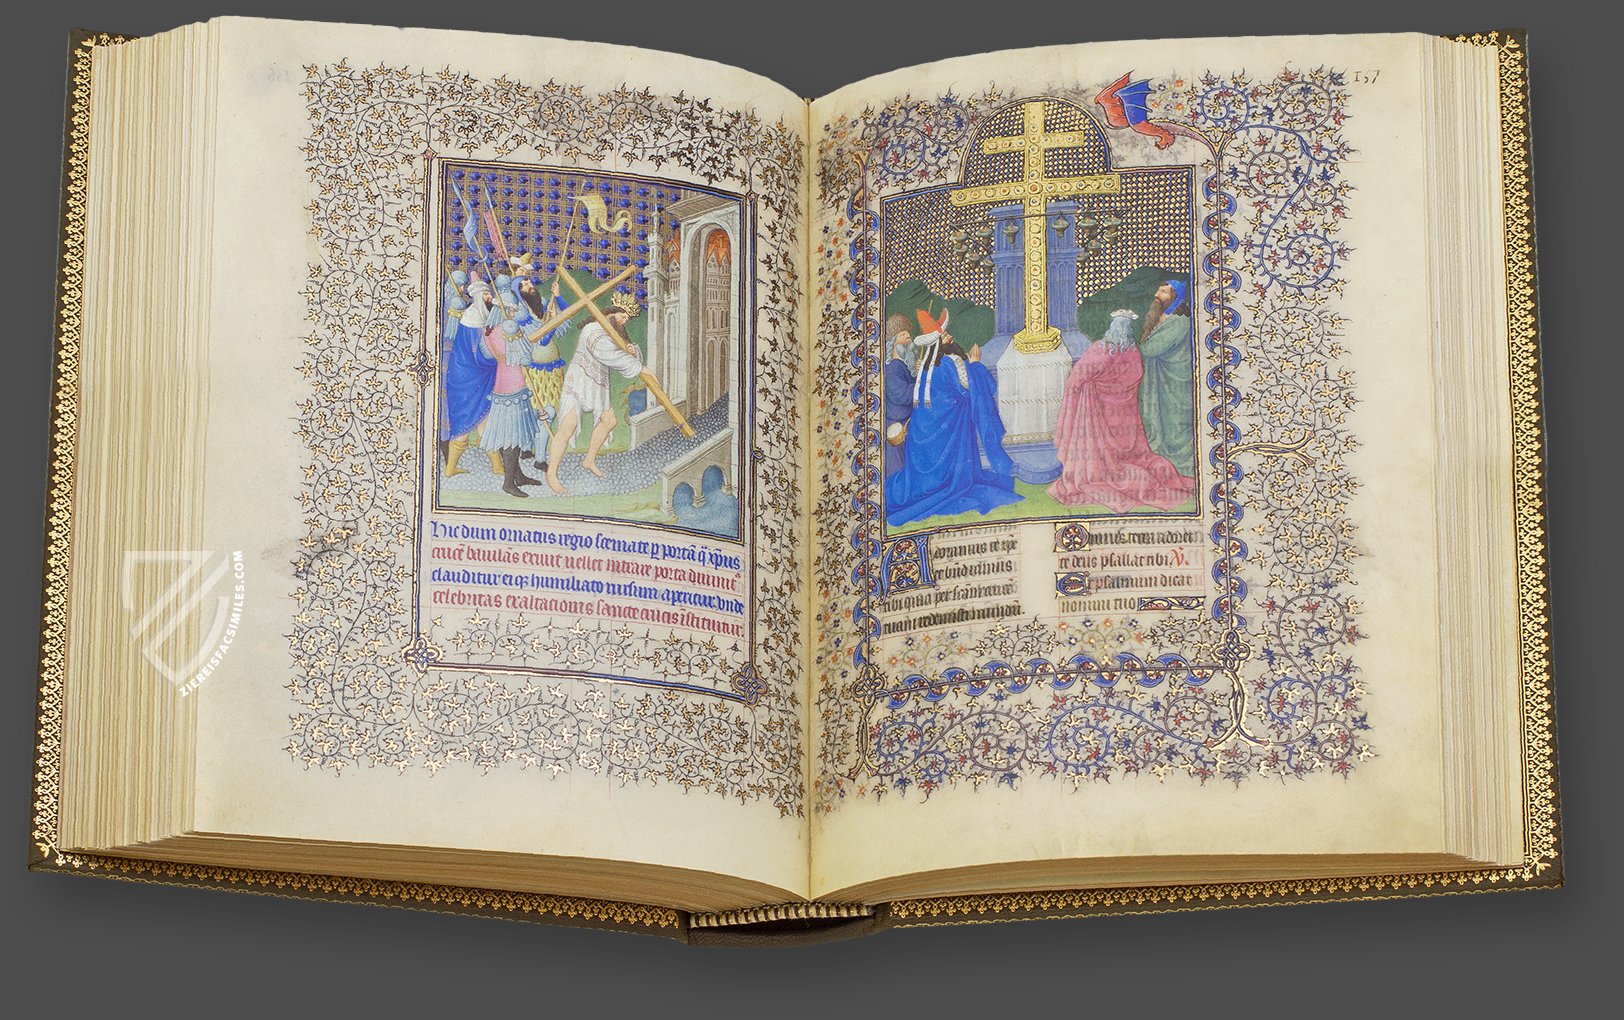 Hic dum ornatus regio scemate p portā q̄ xp̄us
crucē baiulās exiuit uellet intrare porta diuinit9
clauditur eiq3 humiliato rursum aperitur. Vnde
celebritas exaltacionis sancte crucis īstituitur.
157
Adoramus te xp̄e
et bn̄dicimus
tibi quia per
tuam redemisti mundum.
Omnis terra adoret
te deus psallat tibi.
Et psalmum dicat
nomini tuo
ZIEREISFACSIMILES.COM